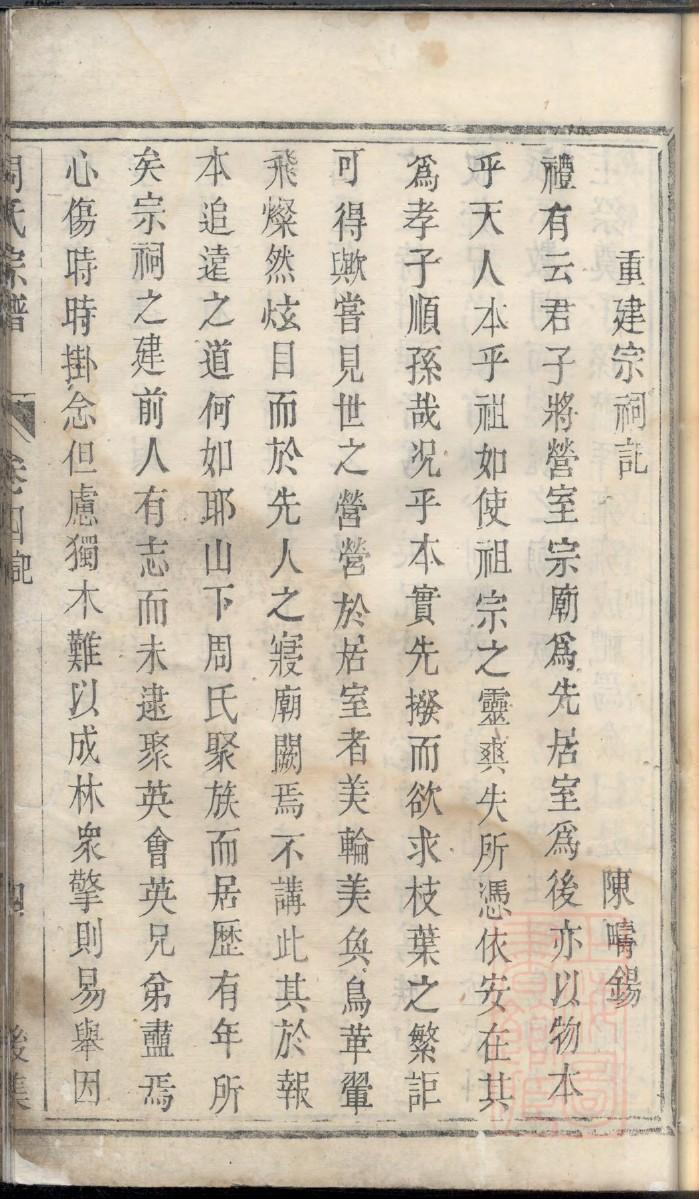 重建宗祠記
陳疇錫
禮有云君子將營室宗廟爲先居室爲後亦以物本
乎天人本乎祖如使祖宗之靈爽失所憑依安在其
爲孝子順孫哉况乎本實先撥而欲求枝葉之繁詎
可得歟嘗見世之營營於居室者美輪美奐鳥革翬
飛燦然炫目而於先人之寢廟闕焉不講此其於報
本追遠之道何如耶山下周氏聚族而居歷有年所
矣宗祠之建前人有志而未逮聚英會英兄弟藎焉
心傷時時掛念但慮獨木難以成林衆擎則易舉因
周氏宗譜
卷四記
四
後集